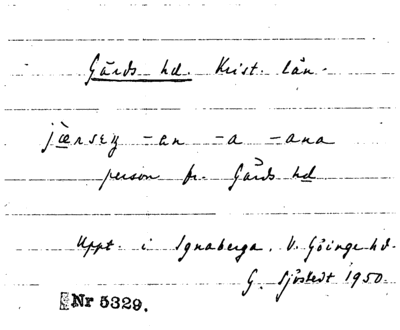 Gärds hd. Krist. län.
jærsey -an -a -ana
person fr. Gärds hd
Uppt. i Ignaberga. V. Göinge hd.
G. Sjöstedt 1950.
Nr 5329.